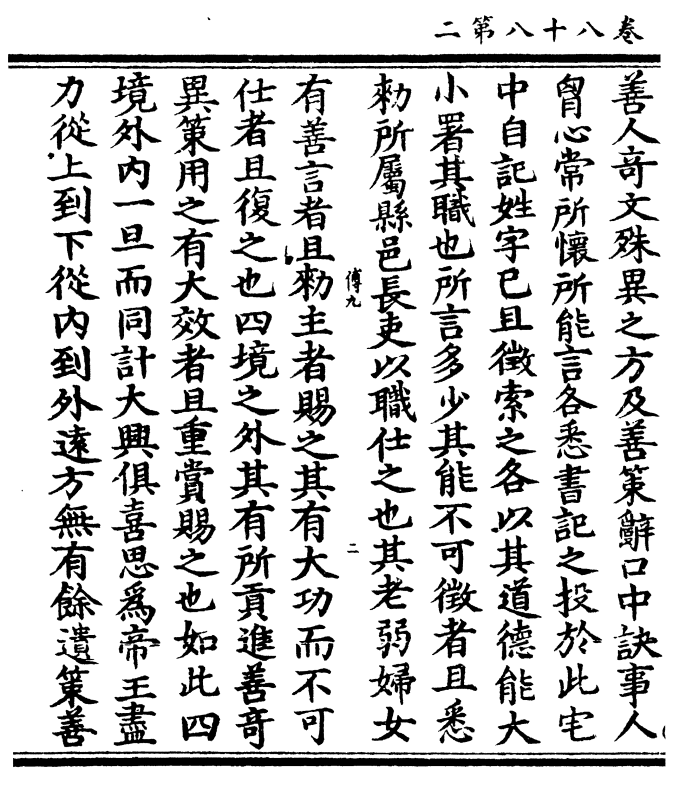 卷八十八第二
善人竒文殊異之方及善策辭口中訣事人
胷心常所懷所能言各悉書記之投於此宅
中自記姓字已且徵索之各以其道德能大
小署其職也所言多少其能不可徵者且悉
勑所屬縣邑長吏以職仕之也其老弱婦女
傅九
二
有善言者且勑主者賜之其有大功而不可
仕者且復之也四境之外其有所貢進善竒
異策用之有大效者且重賞賜之也如此四
境外内一旦而同計大興俱喜思爲帝王盡
力從上到下從内到外遠方無有餘遺策善